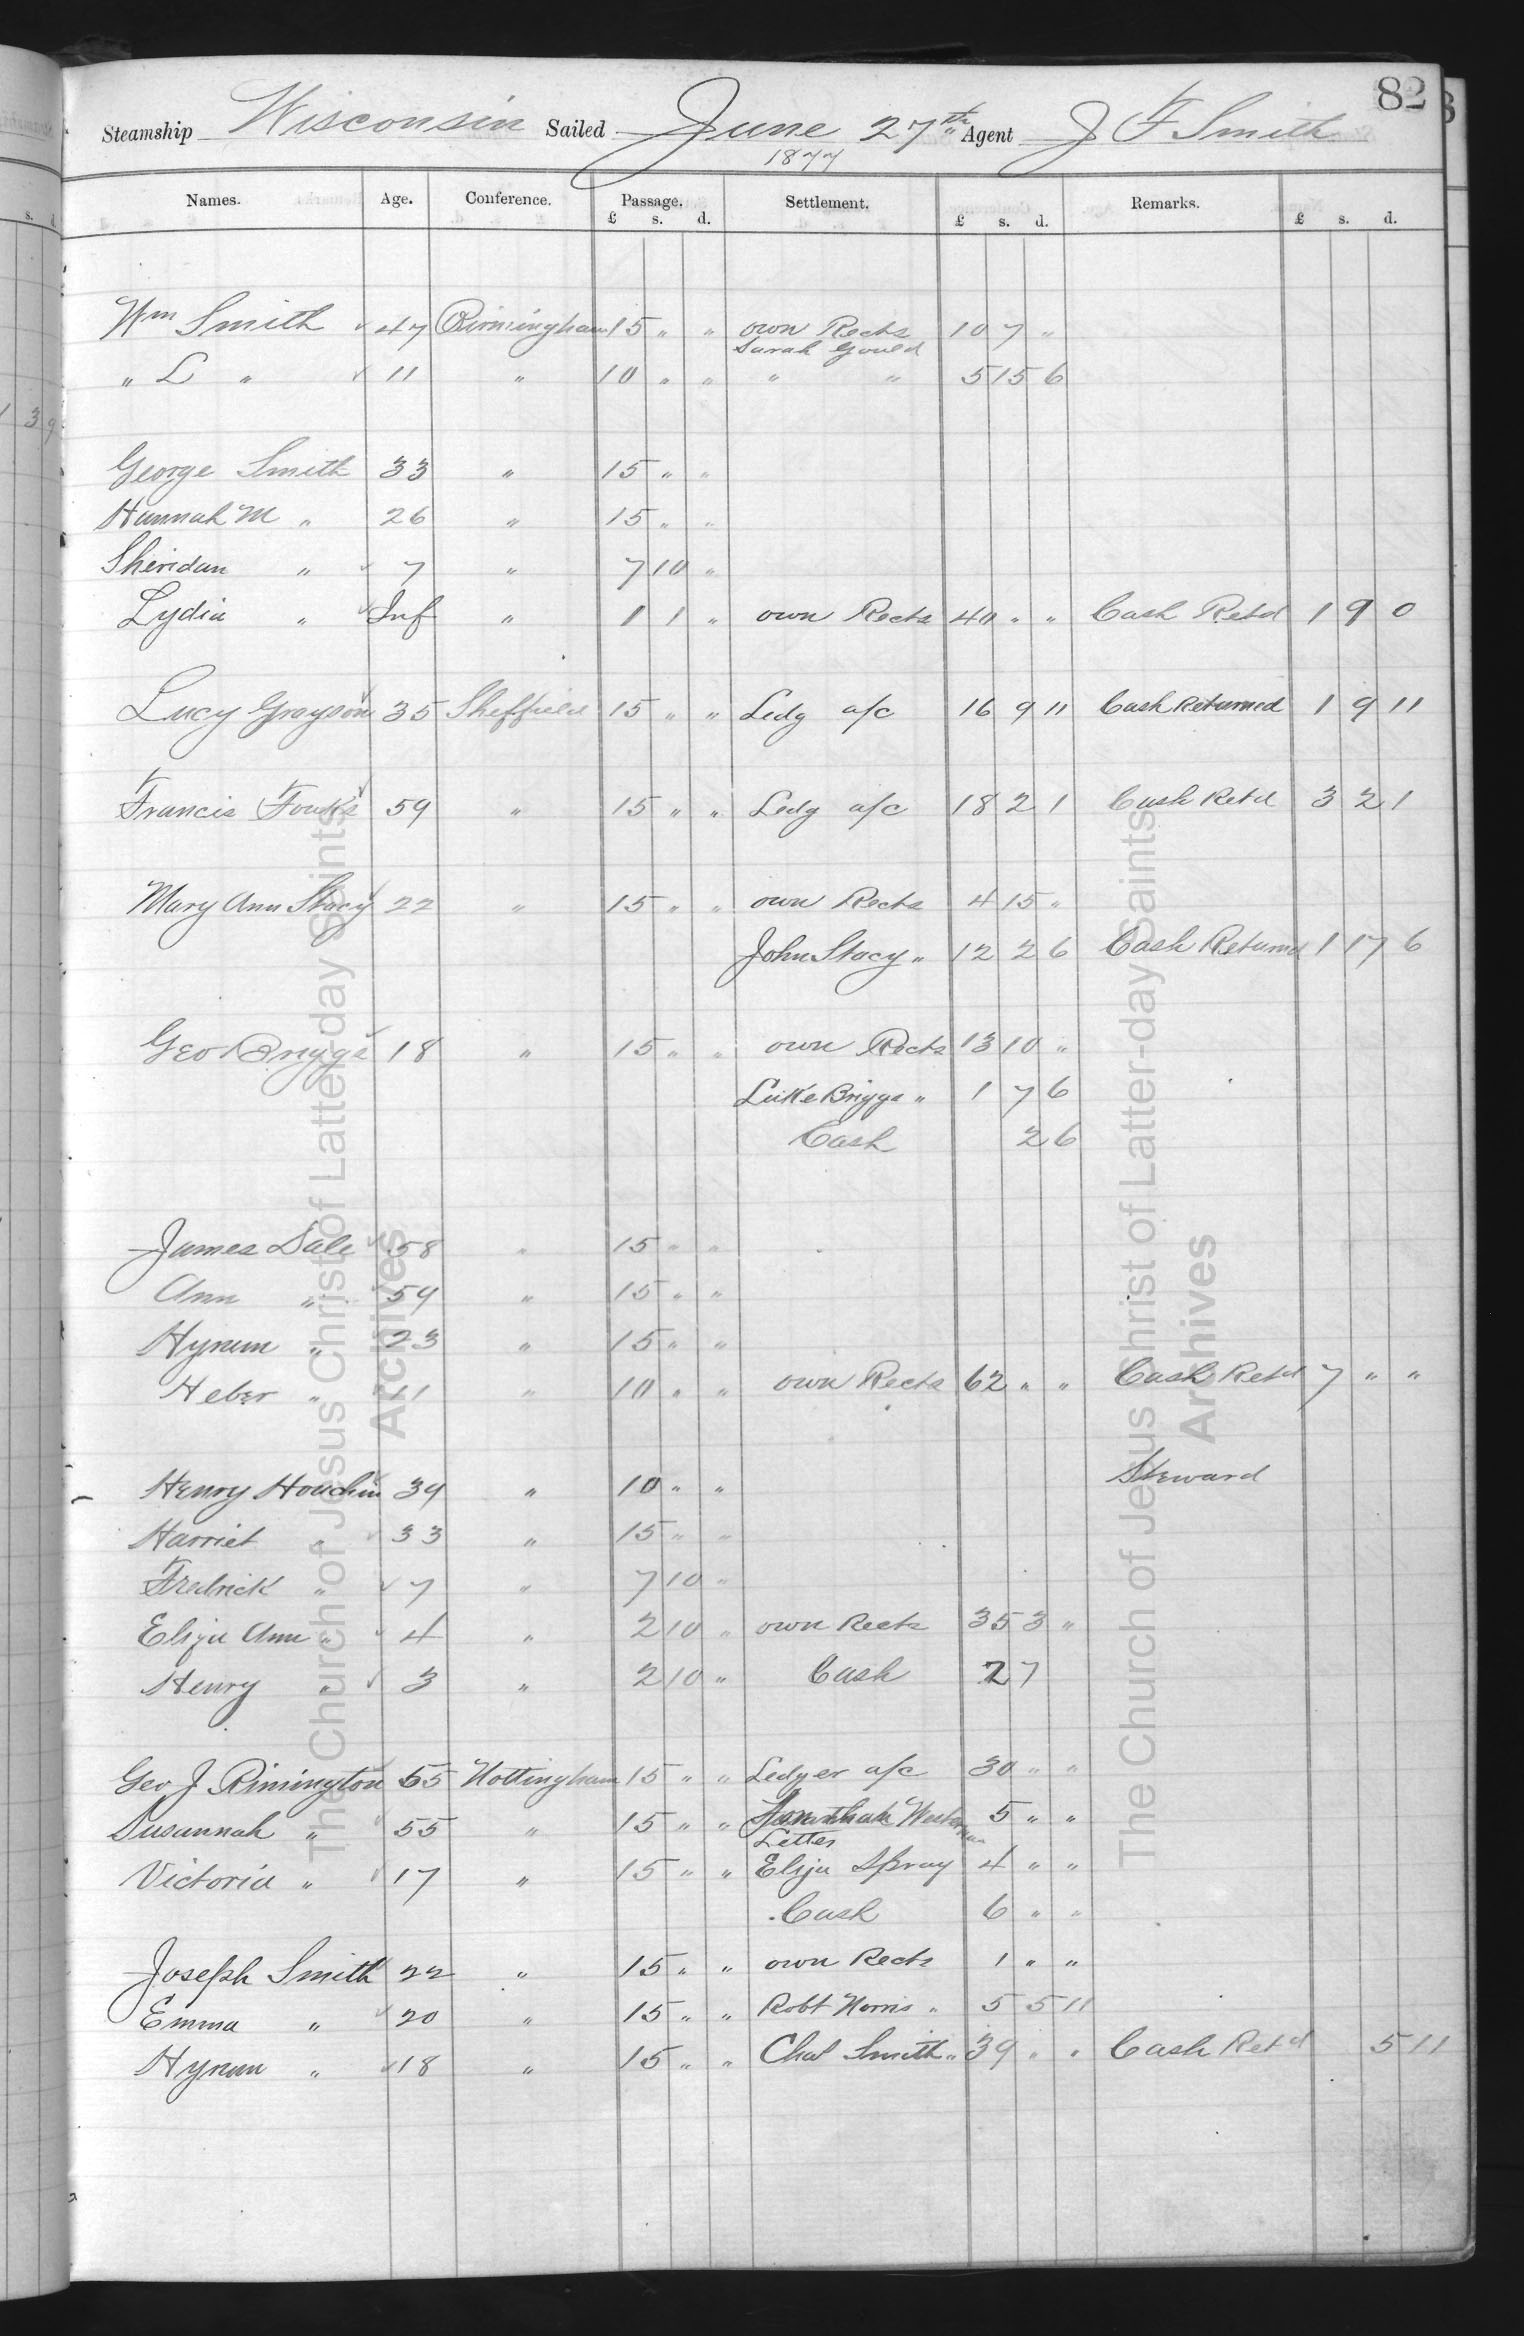 82
Steamship Wisconsin Sailed June 27th Agent J F Smith
1877
Names. Age. Conference. Passage. Settlement. Remarks.
£ s. d. £ s. d. £ s. d.
Wm Smith 47 Birmingham 15 " " own Rects 10 7 "
Sarah Gould
" L " 11 " 10 " " " " 5 15 6
George Smith 33 " 15 " "
Hannah M " 26 " 15 " "
Sheridan " 7 " 7 10 "
Lydia " Inf " 1 1 " own Rects 40 " " Cash Retd 1 9 0
Lucy Grayson 35 Sheffield 15 " " Ledg a/c 16 9 11 Cash Returned 1 9 11
Francis Fouks 59 " 15 " " Ledg a/c 18 2 1 Cash Retd 3 2 1
Mary Ann Stacy 22 " 15 " " own Rects 4 15 "
John Stacy " 12 2 6 Cash Returnd 1 17 6
Geo Briggs 18 " 15 " " own Rects 13 10 "
Luke Briggs " 1 7 6
Cash 2 6
James Dale 58 " 15 " "
Ann " 59 " 15 " "
Hyrum " 23 " 15 " "
Heber " 11 " 10 " " own Rects 62 " " Cash Retd 7 " "
Henry Houchin 39 " 10 " " Steward
Harriet " 33 " 15 " "
Fredrick " 7 " 7 10 "
Eliza Ann " 4 " 2 10 " own Rects 35 3 "
Henry " 3 " 2 10 " Cash 2 7
Geo J Rimington 55 Nottingham 15 " " Ledger a/c 30 " "
Susannah " 55 " 15 " " 5 " "
Letter
Victoria " 17 " 15 " " Eliza Spray 4 " "
Cash 6 " "
Joseph Smith 22 " 15 " " own Rects 1 " "
Emma " 20 " 15 " " Robt Norris " 5 5 11
Hyrum " 18 " 15 " " Chas Smith " 39 " " Cash Retd 5 11
The Church of Jesus Christ of Latter-day Saints
Archives
The Church of Jesus Christ of Latter-day Saints
Archives